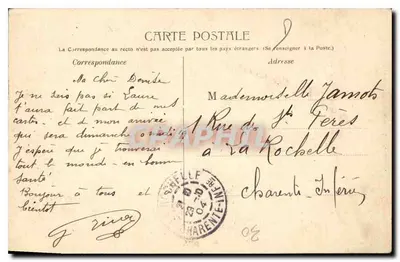 CARTE POSTALE
La Correspondance au recto n'est pas acceptée par tous les pays étrangers. (Se renseigner à la Poste.)
Correspondance
Adresse
Ma Chère
Je ne sais pas si Laura
t'aura fait part de mes
cartes et de mon arrivée
qui sera dimanche
J'espère que je trouverai
tout le monde en bonne
santé
Bonjour à tous et à
bientôt
Mademoiselle Jamots
1 Rue de St Pères
à La Rochelle
Charente Infér
CHARENTE-INFRE
04